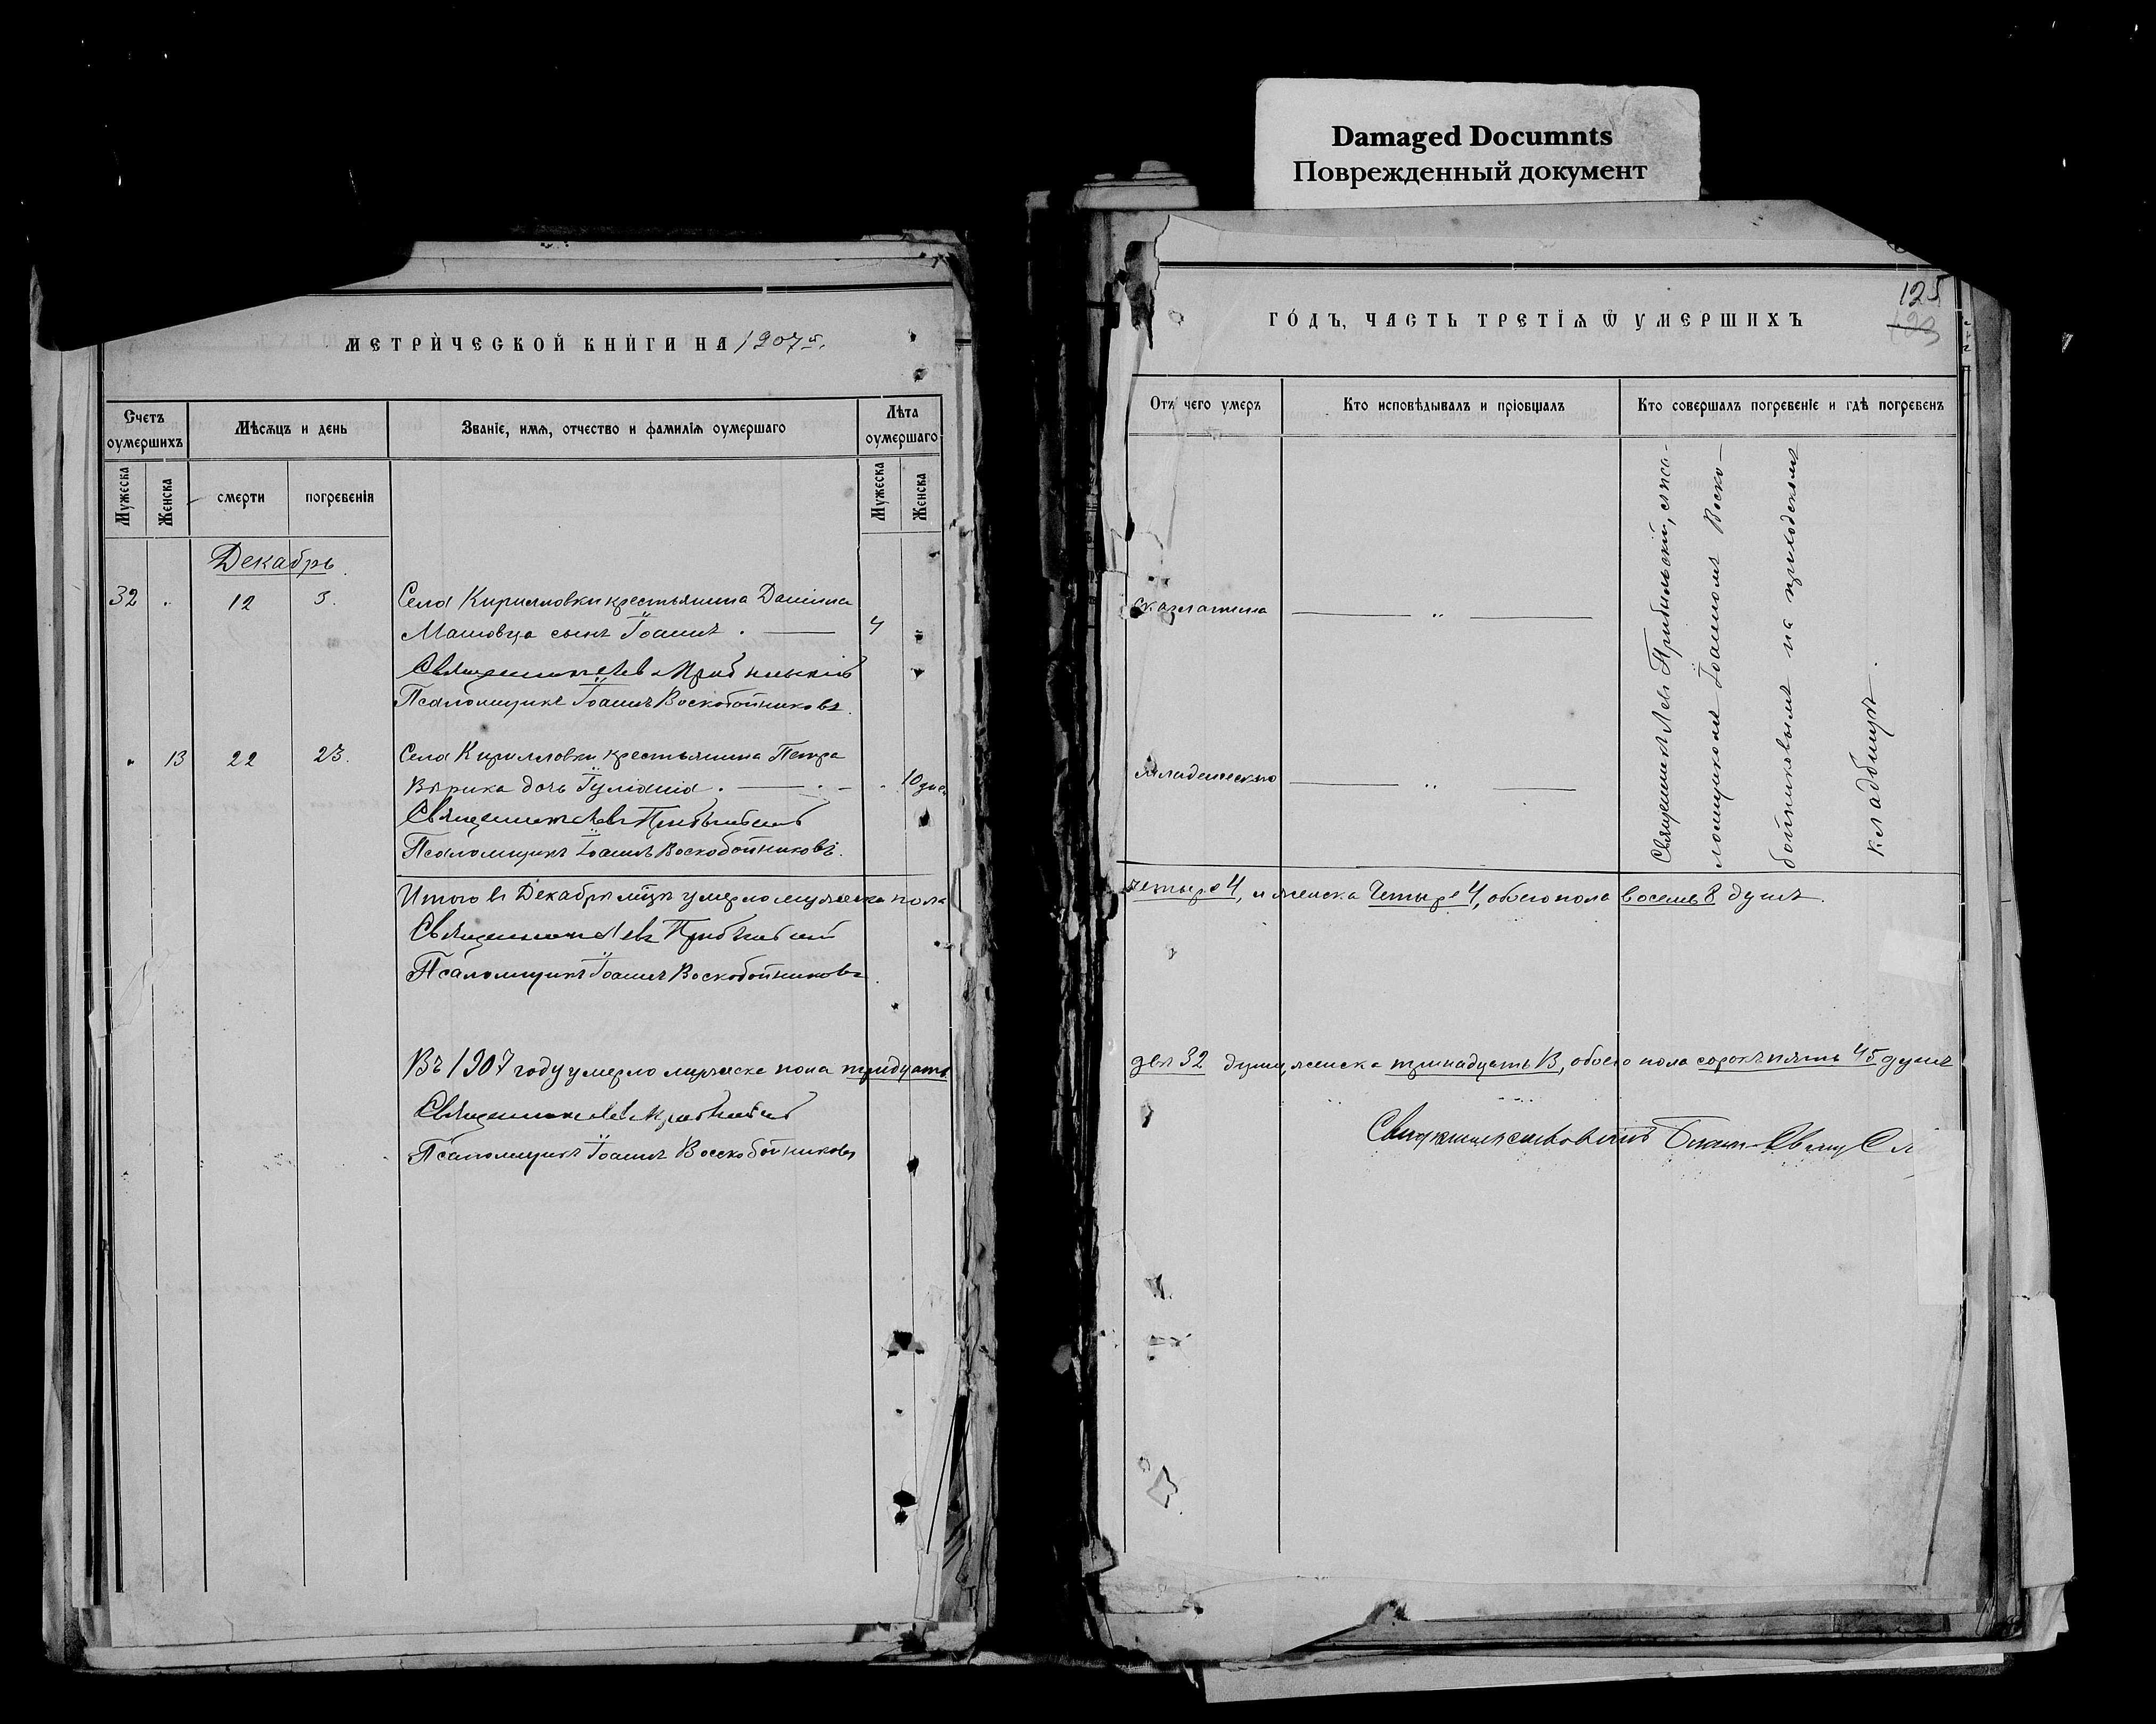 Damaged Documnts
Поврежденный документ
МЕТРИЧЕСКОЙ КНИГИ НА 1907 г.
Счетъ оумершихъ
Мѣсяцъ и день
Званіе, имя, отчество и фамилія оумершаго
Лѣта оумершаго
Мужеска
Женска
смерти
погребенія
Мужеска
Женска
Декабрь
32 12 3. Села Кирилловки крестьянина Даніила 4
сынъ Іоаннъ.
Священникъ Левъ
Псаломщикъ Іоаннъ Воскобойниковъ.
13 22 23. Села Кирилловки крестьянина Петра
дочь Іуліанія. 10 дней
Священникъ Левъ
Псаломщикъ Іоаннъ Воскобойниковъ.
Итого въ Декабрѣ умерло мужеска пола
Священникъ Левъ
Псаломщикъ Іоаннъ Воскобойниковъ.
Въ 1907 году умерло мужеска пола тридцать
Священникъ Левъ
Псаломщикъ Іоаннъ Воскобойниковъ
125
123
ГОДЪ, ЧАСТЬ ТРЕТІЯ Ѿ УМЕРШИХЪ
Отъ чего умеръ
Кто исповѣдывалъ и пріобщалъ
Кто совершалъ погребеніе и гдѣ погребенъ
Скарлатина "
Младенческою "
Священникъ Левъ Прибыльскій, съ пса-
ломщикомъ Іоанномъ Воско-
бойниковымъ на приходскомъ
кладбищѣ.
четыре 4, и женска четыре 4, обоего пола восемь 8 душъ.
два 32 душъ женска тринадцать 13, обоего пола сорокъ пять 45 душъ